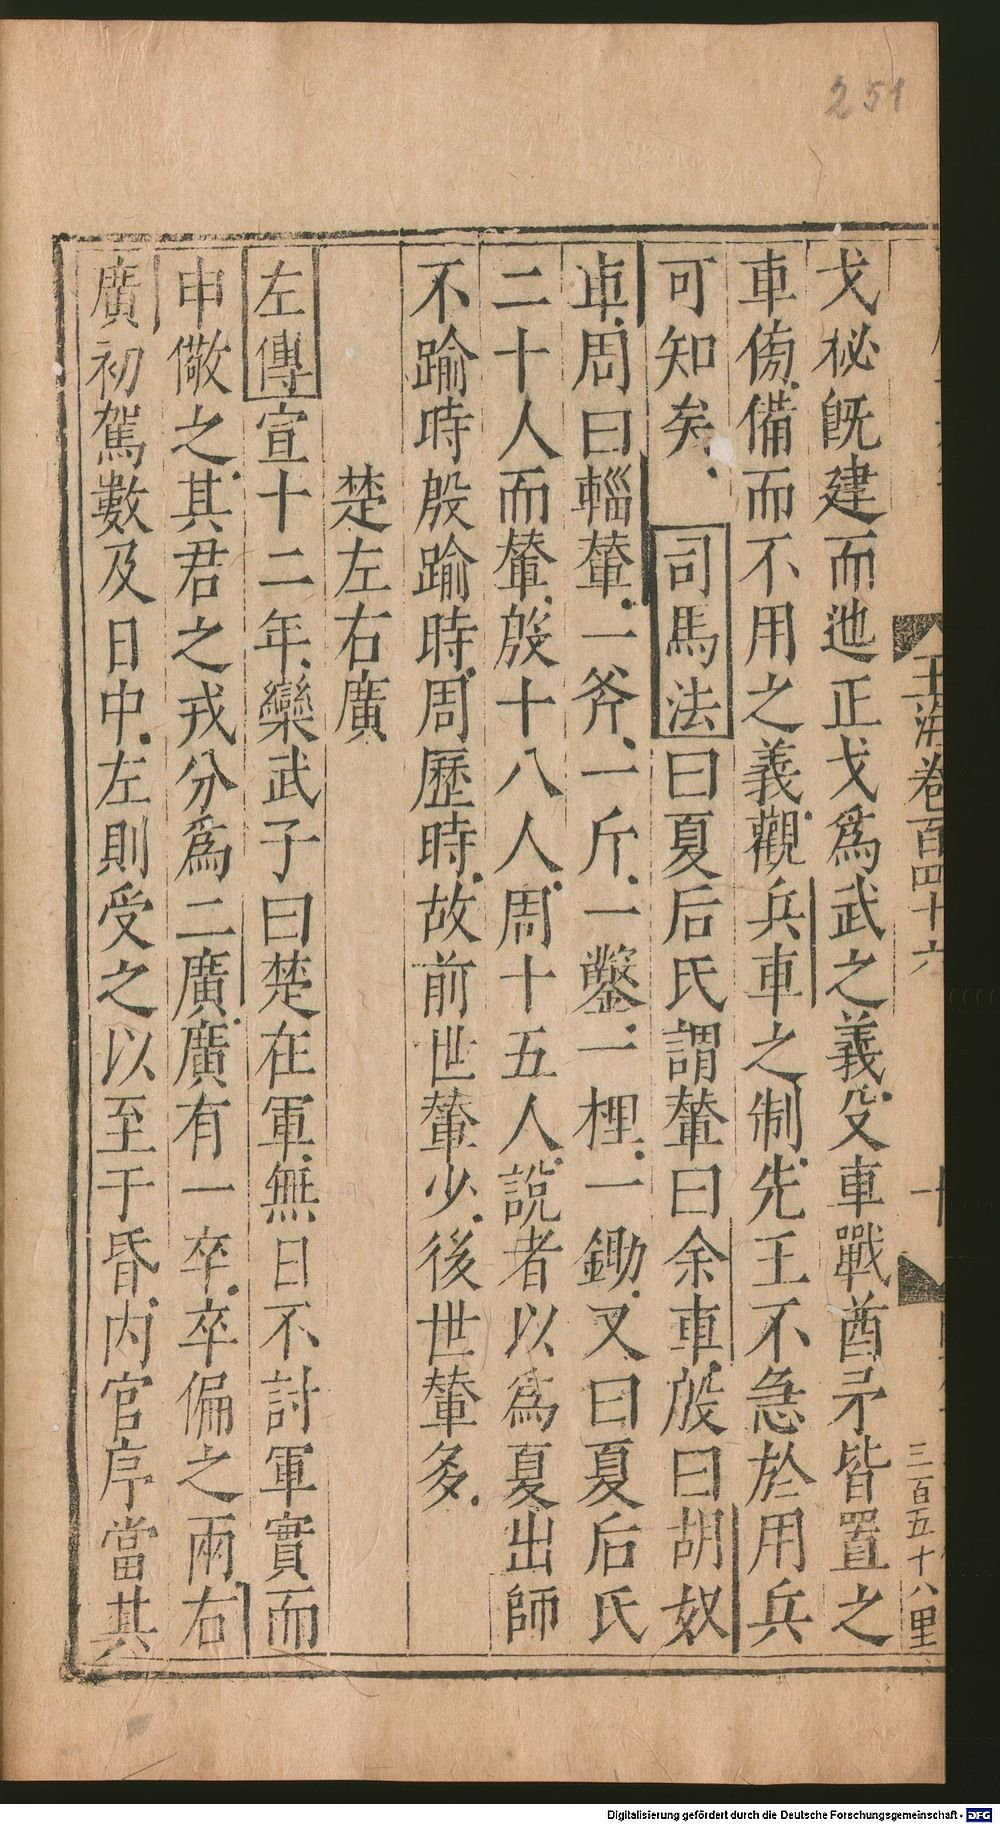 251
玉海卷百四十六
十
三百五十八里
戈柲旣建而迆正戈爲武之義殳車戰酋矛皆置之
車傍備而不用之義觀兵車之制先王不急於用兵
可知矣司馬法曰夏后氏謂輦曰余車殷曰胡奴
車周曰輜輦一斧一斤一鑿一梩一鋤又曰夏后氏
二十人而輦殷十八人周十五人說者以爲夏出師
不踰時殷踰時周歷時故前世輦少後世輦多
楚左右廣
左傳宣十二年欒武子曰楚在軍無日不討軍實而
申儆之其君之戎分爲二廣廣有一卒卒偏之兩右
廣初駕數及日中左則受之以至于昏內官序當其
Digitalisierung gefördert durch die Deutsche Forschungsgemeinschaft - DFG